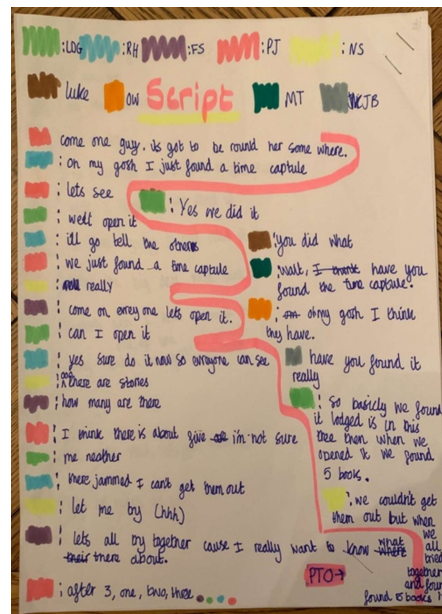 :LOG :RH :FS :PJ :NS
luke OW Script MT :NCJB
come one guy. its got to be round her some where.
: oh my gosh I just found a time captule
: lets see
: well open it
: ill go tell the others
: we just found a time captule
: really
: come on enrey one lets open it.
: can I open it
: yes sure do it now so enryone can see
: there are stories
: how many are there
: I think there is about five i'm not sure
: me neather
: there jammed I can't get them out
: let me try (hhh)
: lets all try together cause I really want to know what there about.
: after 3, one, two, three
: Yes we did it
: you did what
: wait, I think have you
found the time captule.
: oh my gosh I think
they have.
have you found it
really
: so basicly we found
it lodged is in this
tree then when we
opened it we found
5 books.
: we couldn't get
them out but when
we
all
tried
together
and four
found 5 books
PTO→